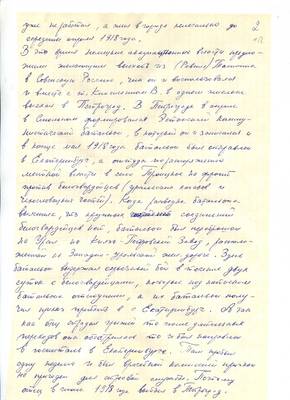 уже не работал, а жил в городе нелегально до
середины апреля 1918 года.
В это время немецкие оккупационные власти предло-
жили желающим выехать из (Ревеля) Таллина
в Советскую Россию, чем он и воспользовался
и вместе с В. в одном эшелоне
выехал в Петроград. В Петрограде в апреле
в Смольном формировался Эстонский комму-
нистический батальон, в который он и записался и
в конце мая 1918 года батальон был отправлен
в Екатеринбург, а оттуда по распоряжению
местной власти в село Троицкое на фронт
против белогвардейцев (уральских казаков и
чехословацких частей). Когда разведка батальона
выяснила, что крупных соединений
белогвардейцев нет, батальон был переброшен
на Урал на Завод, распо-
ложенном на Западно-уральской жел. дороге. Здесь
батальон выдержал серьезный бой в течение двух
суток с белогвардейцами, которые под натиском
батальона отступили, а их батальон полу-
чил приказ прибыть в г. Екатеринбург. А так
как ему после длительных
переходов он был направлен
в госпиталь в Екатеринбурге. Там пробыл
одну неделю и был врачебной комиссией признан
не пригоден для строевой службы. Поэтому
отец в июле 1918 года выехал в Петроград.